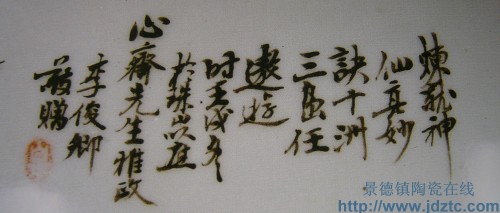 煉就神
仙真妙
訣十洲
三島任
遨遊
时壬戌冬
於珠山
心齋先生雅政
李俊卿
景德镇陶瓷在线
http://www.jdztc.com